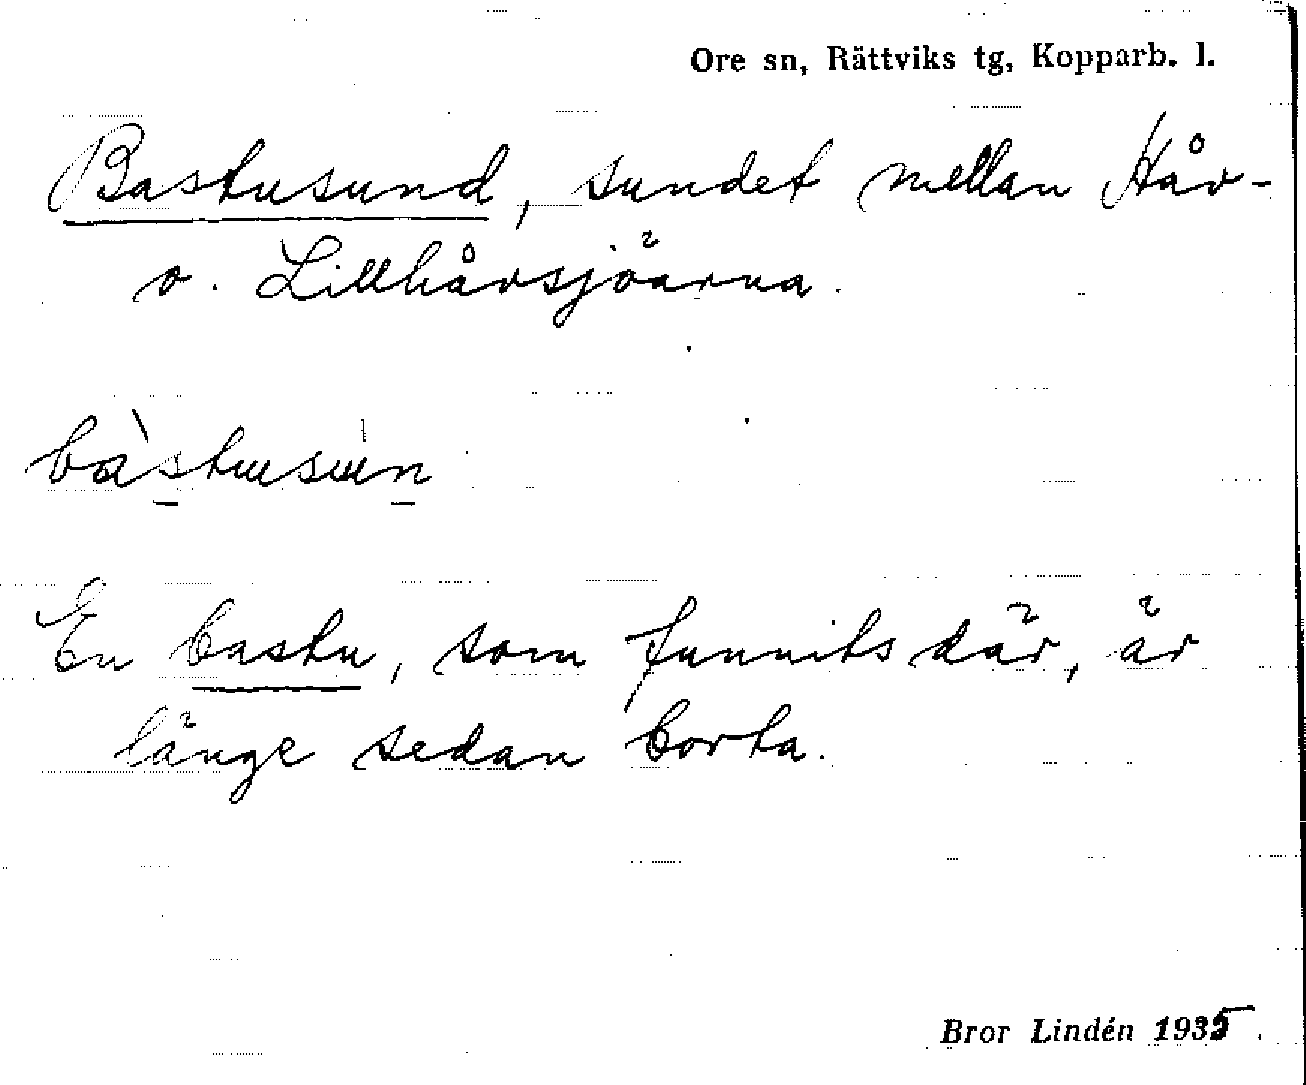 Ore sn, Rättviks tg, Kopparb. l.
Bastusund, sundet mellan Håv-
o. Lillhåvsjöarna.
bàstusun
En bastu, som funnits där, är
länge sedan borta.
Bror Lindén 1935.